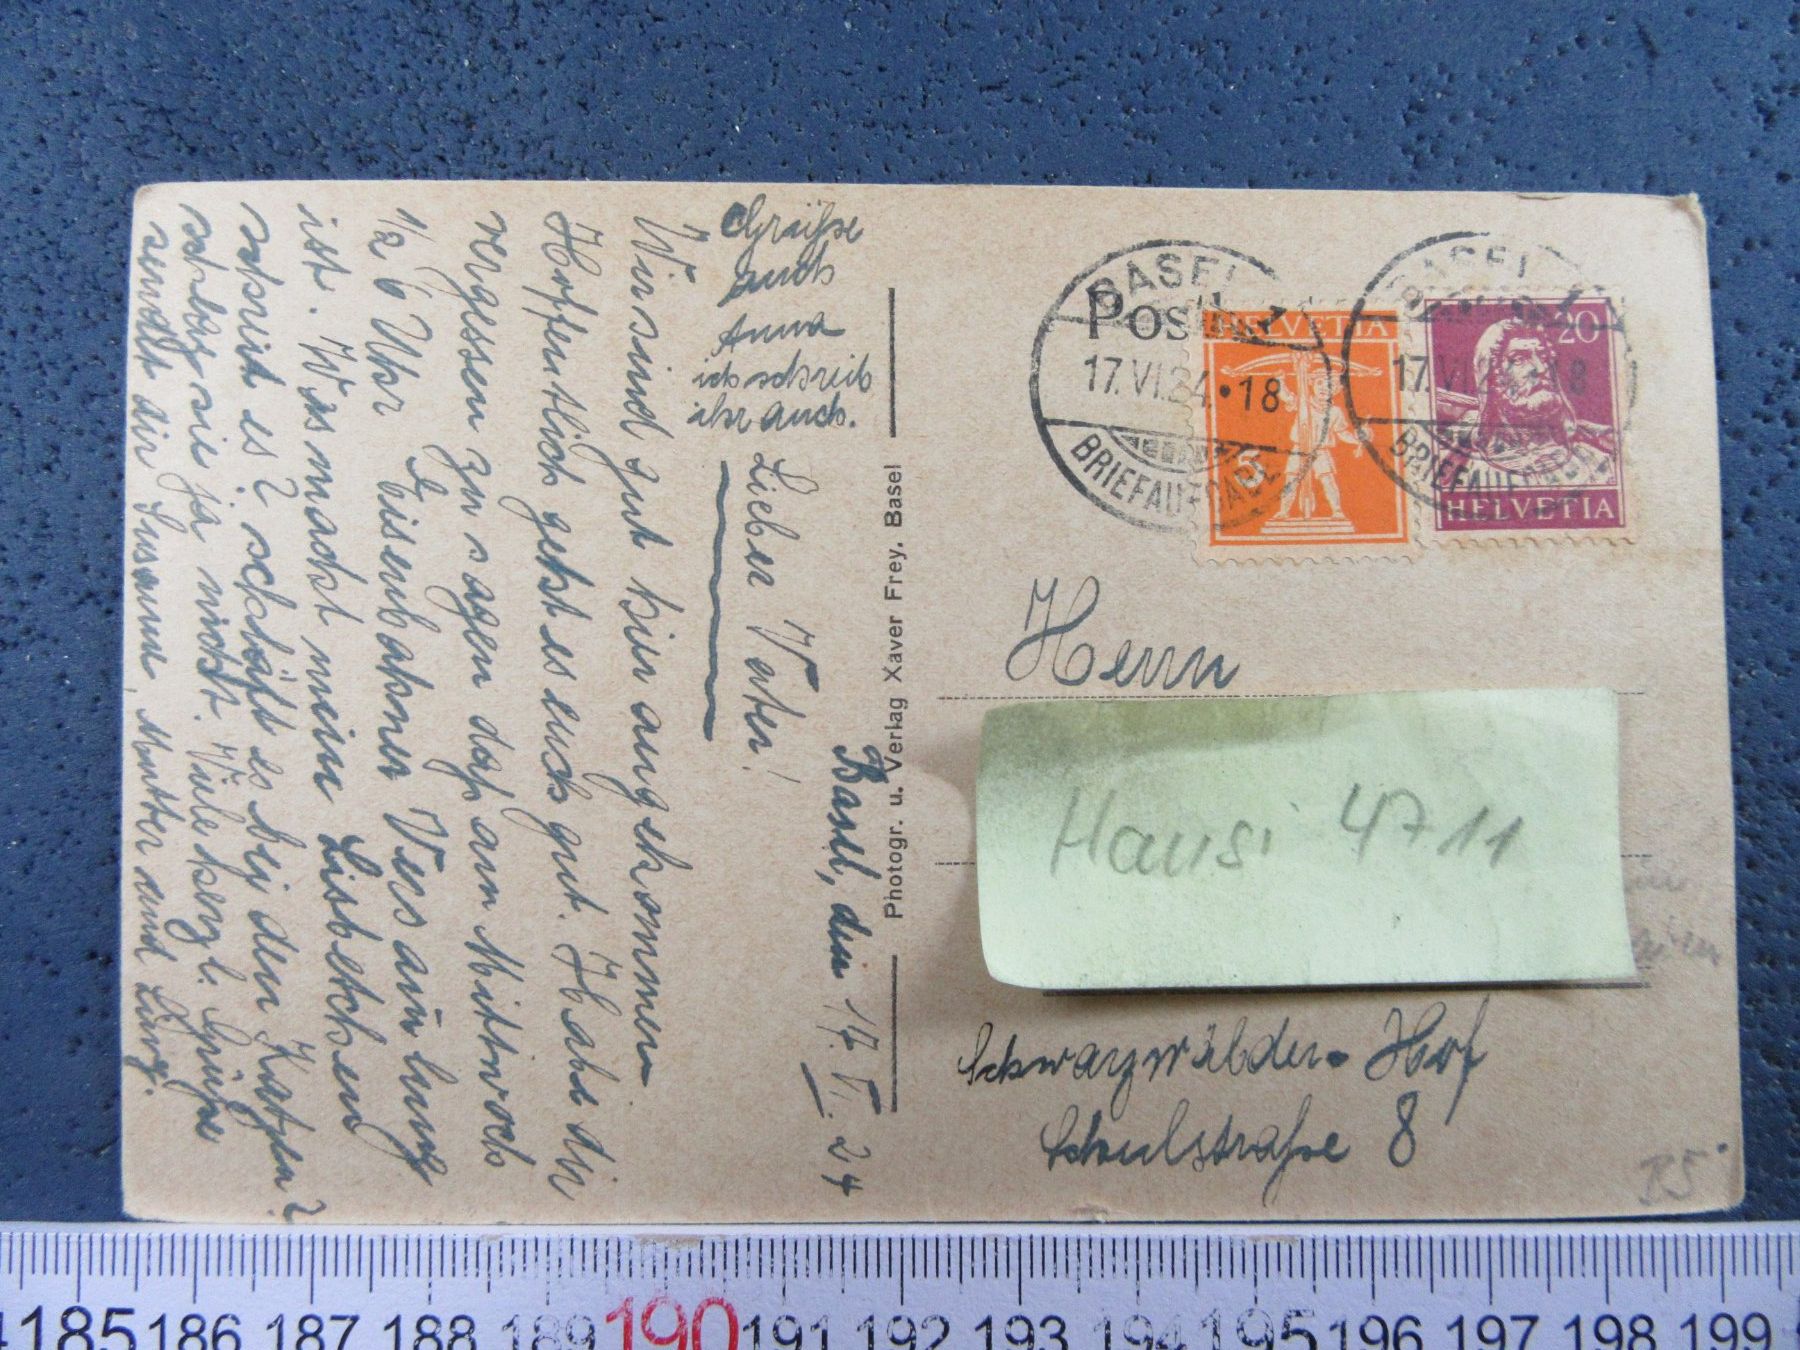 Basel, den 17. VI. 24
Lieber Vater!
Wir sind gut hier angekommen
Hoffentlich geht es euch gut. Habe dir
vergessen zu sagen daß am Mittwoch
1/2 6 Uhr Eisenbahner Versamlung
ist. Was macht mein Lisbethchen
schreit es? schläft es bej den Katzen?
schlag sie ja nicht. Viele herzl. Grüße
sendt dir Susanne, Mutter und
Grüße
auch
Anna
ich schreib
ihr auch.
Photogr. u. Verlag Xaver Frey, Basel
BASEL 1
17.VI.24.•18
BRIEFAUFGABE
BASEL 1
17.VI.24.•18
BRIEFAUFGABE
Post
HELVETIA
5
20
HELVETIA
Herrn
Hansi 4711
Schwarzwälder-Hof
Schulstraße 8
185 186 187 188 189 190 191 192 193 194 195 196 197 198 199